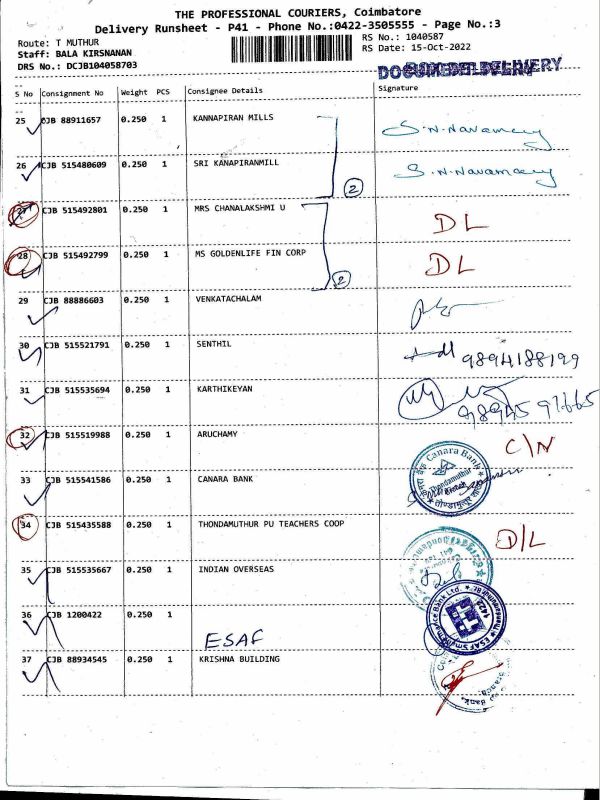 THE PROFESSIONAL COURIERS, Coimbatore
Delivery Runsheet - P41 - Phone No.:0422-3505555 - Page No.:3
Route: T MUTHUR RS No.: 1040587
Staff: BALA KIRSNANAN RS Date: 15-Oct-2022
DRS No.: DCJB104058703
S No Consignment No Weight PCS Consignee Details Signature
25 CJB 88911657 0.250 1 KANNAPIRAN MILLS
26 CJB 515480609 0.250 1 SRI KANAPIRANMILL
2
27 CJB 515492801 0.250 1 MRS CHANALAKSHMI U DL
28 CJB 515492799 0.250 1 MS GOLDENLIFE FIN CORP DL
2
29 CJB 88886603 0.250 1 VENKATACHALAM
30 CJB 515521791 0.250 1 SENTHIL 9894188199
31 CJB 515535694 0.250 1 KARTHIKEYAN
32 CJB 515519988 0.250 1 ARUCHAMY C/N
33 CJB 515541586 0.250 1 CANARA BANK Canara Bank Thondamuthur
34 CJB 515435588 0.250 1 THONDAMUTHUR PU TEACHERS COOP D/L
35 CJB 515535667 0.250 1 INDIAN OVERSEAS
36 CJB 1200422 0.250 1
ESAF
1422
37 CJB 88934545 0.250 1 KRISHNA BUILDING